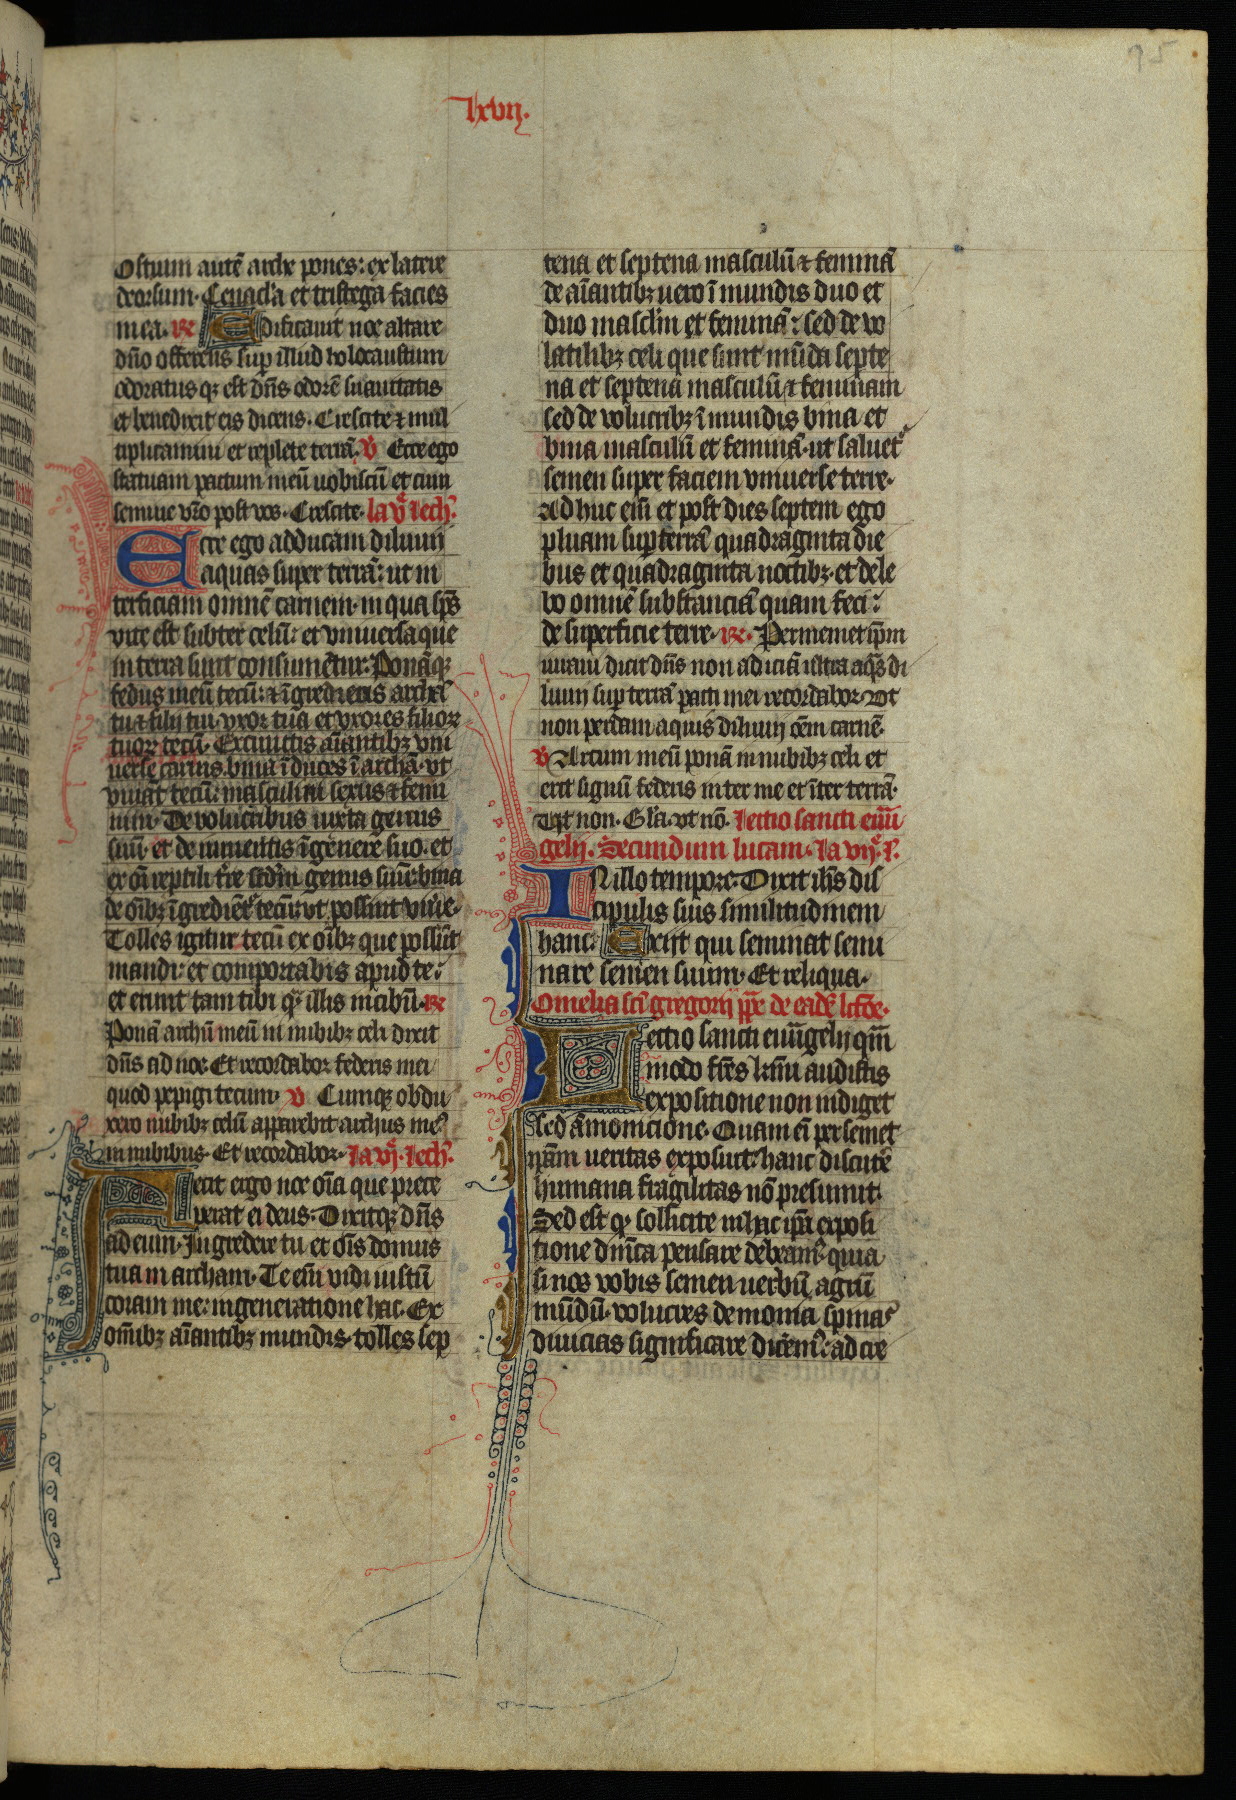 95
lxvij.
Ostium autē arche pones: ex latere
deorsum. Cenacl'a et tristega facies
in ea. R̷ Edificauit noe altare
dn̄o offerens sup illud holocaustum
odoratus qꝫ est dn̄s odorē suauitatis
et benedixit eis dicens. Crescite ⁊ mul
tiplicamini et replete terrā. V̷ Ecce ego
statuam pactum meū uobiscū et cum
semine vr̄o post vos. Crescite. la v̄ lech.
Ecce ego adducam diluuij
aquas super terrā: ut in
terficiam omnē carnem. in qua sp̄s
vite est subter celū: et vniuersa que
in terra sunt consumētur. Ponāqꝫ
fedus meū tecū: ⁊ īgredieris archā
tu ⁊ filij tui. vxor tua et vxores filioꝝ
tuoꝝ tecū. Ex cunctis aīantibꝫ vni
uerse carnis. bina īduces ī archā. vt
viuāt tecū: masculini sexus ⁊ femi
nini. De volucribus iuxta genus
suū. et de iumentis ī genere suo. et
ex oī reptili tr̄e scdm̄ genus suū: bina
de oībꝫ īgrediēt tecū: vt possint viue.
Tolles igitur tecū ex oībꝫ que possūt
mandi: et comportabis apud te:
et erunt tam tibi qꝫ illis in cibū. R̷
Ponā archū meū in nubibꝫ celi dixit
dn̄s ad noe. Et recordabor federis mei
quod pepigi tecum. V̷ Cumqꝫ obdu
xero nubibꝫ celū apparebit archus meꝰ
in nubibus. Et recordabor. la vj. lech.
Fecit ergo noe oīa que prece
perat ei deus. Dixitqꝫ dn̄s
ad eum. Ingredere tu et oīs domus
tua in archam. Te em̄ vidi iustū
coram me: in generatione hac. Ex
om̄ibꝫ aīantibꝫ mundis. tolles sep
tena et septena masculū ⁊ feminā
de aīantibꝫ uero ī mundis duo et
duo masclīn et feminā: sed de vo
latilibꝫ celi que sunt mūda septe
na et septena masculū ⁊ feminam
sed de volucribꝫ ī mundis bina et
bina masculū et feminā. ut saluet̉
semen super faciem vniuerse terre.
Ad huc em̄ et post dies septem ego
pluam sup terrā quadraginta die
bus et quadraginta noctibꝫ. et dele
bo omnē substanciā quam feci:
de superficie terre. R̷. Per memet ip̄m
iuraui dicit dn̄s non adiciā ultra aqꝫs di
luuij sup terrā pacti mei recordabor. Vt
non perdam aquis diluuij oēm carnē.
V̷ Arcum meū ponā in nubibꝫ celi et
erit signū federis inter me et īter terrā.
Vt non. Gl'a. vt nō. lectio sancti euu̅
gelij. Secundum lucam. la vij. l'.
IN illo tempore. Dixit ih̄s dis
cipulis suis similitudinem
hanc. Exijt qui seminat semi
nare semen suum. Et reliqua.
Omelia sc̄i gregorij pp̄e de eadē lcōe.
Lectio sancti euu̅gelij qm̄
modo fr̄es kr̄mi audistis
expositione non indiget
sed āmonicione. Quam eī per semet
ip̄am ueritas exposuit: hanc discutē
humana fragilitas nō presumit.
Sed est qꝫ sollicite in hac ip̄a exposi
tione dn̄ica pensare debeamꝰ. quia
si nos vobis semen uerbū. agrū
mūdū. volucres demonia spinas
diuicias significare dicemꝰ: ad cre